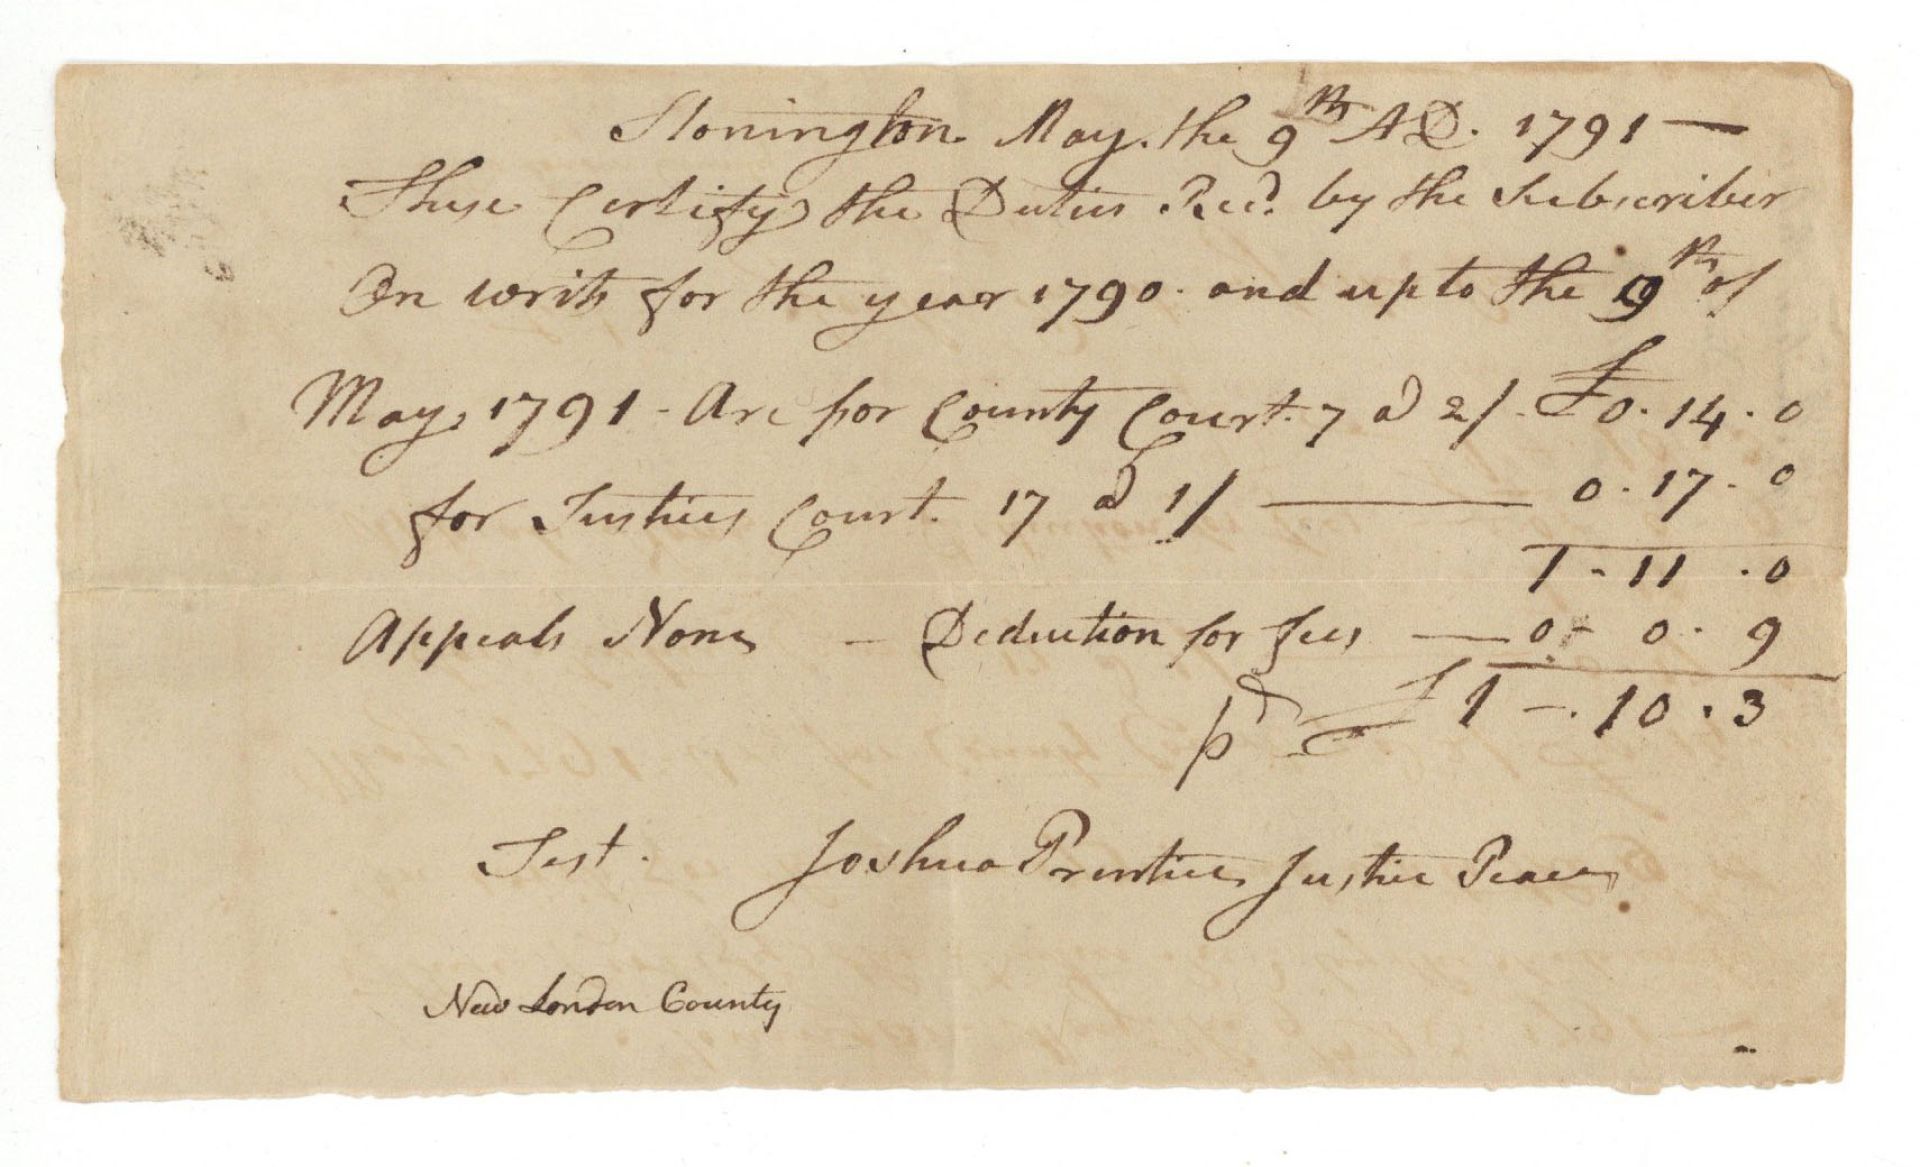 Stonington May the 9th AD. 1791 —
These Certify the Duties Recd. by the Subscriber
On writs for the year 1790. and up to the 9th of
May 1791 - Are for County Court. 7 a 2/- £ 0.14.0
for Justices Court. 17 a 1/ — 0.17.0
1-11.0
Appeals None - Deduction for fees — 0-0.9
pd £1-.10.3
Test. Joshua Prentice Justice Peace
New London County